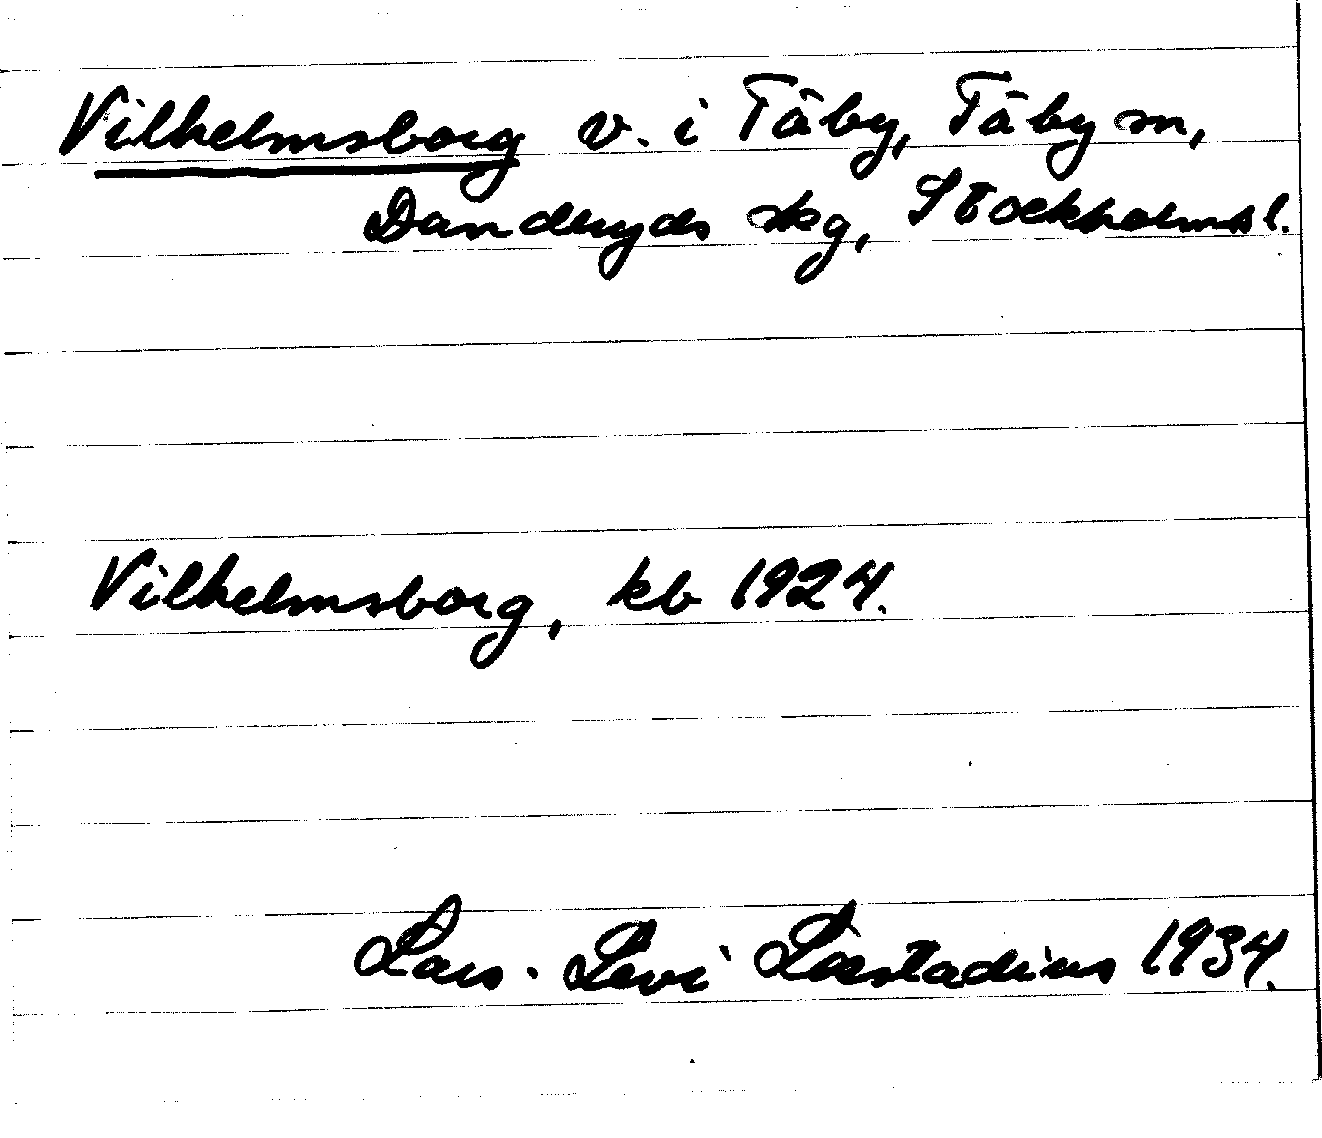 Vilhelmsborg v. i Täby, Täby sn,
Danderyds skg, Stockholms l.
Vilhelmsborg, kb 1924.
Lars-Levi Læstadius 1934.